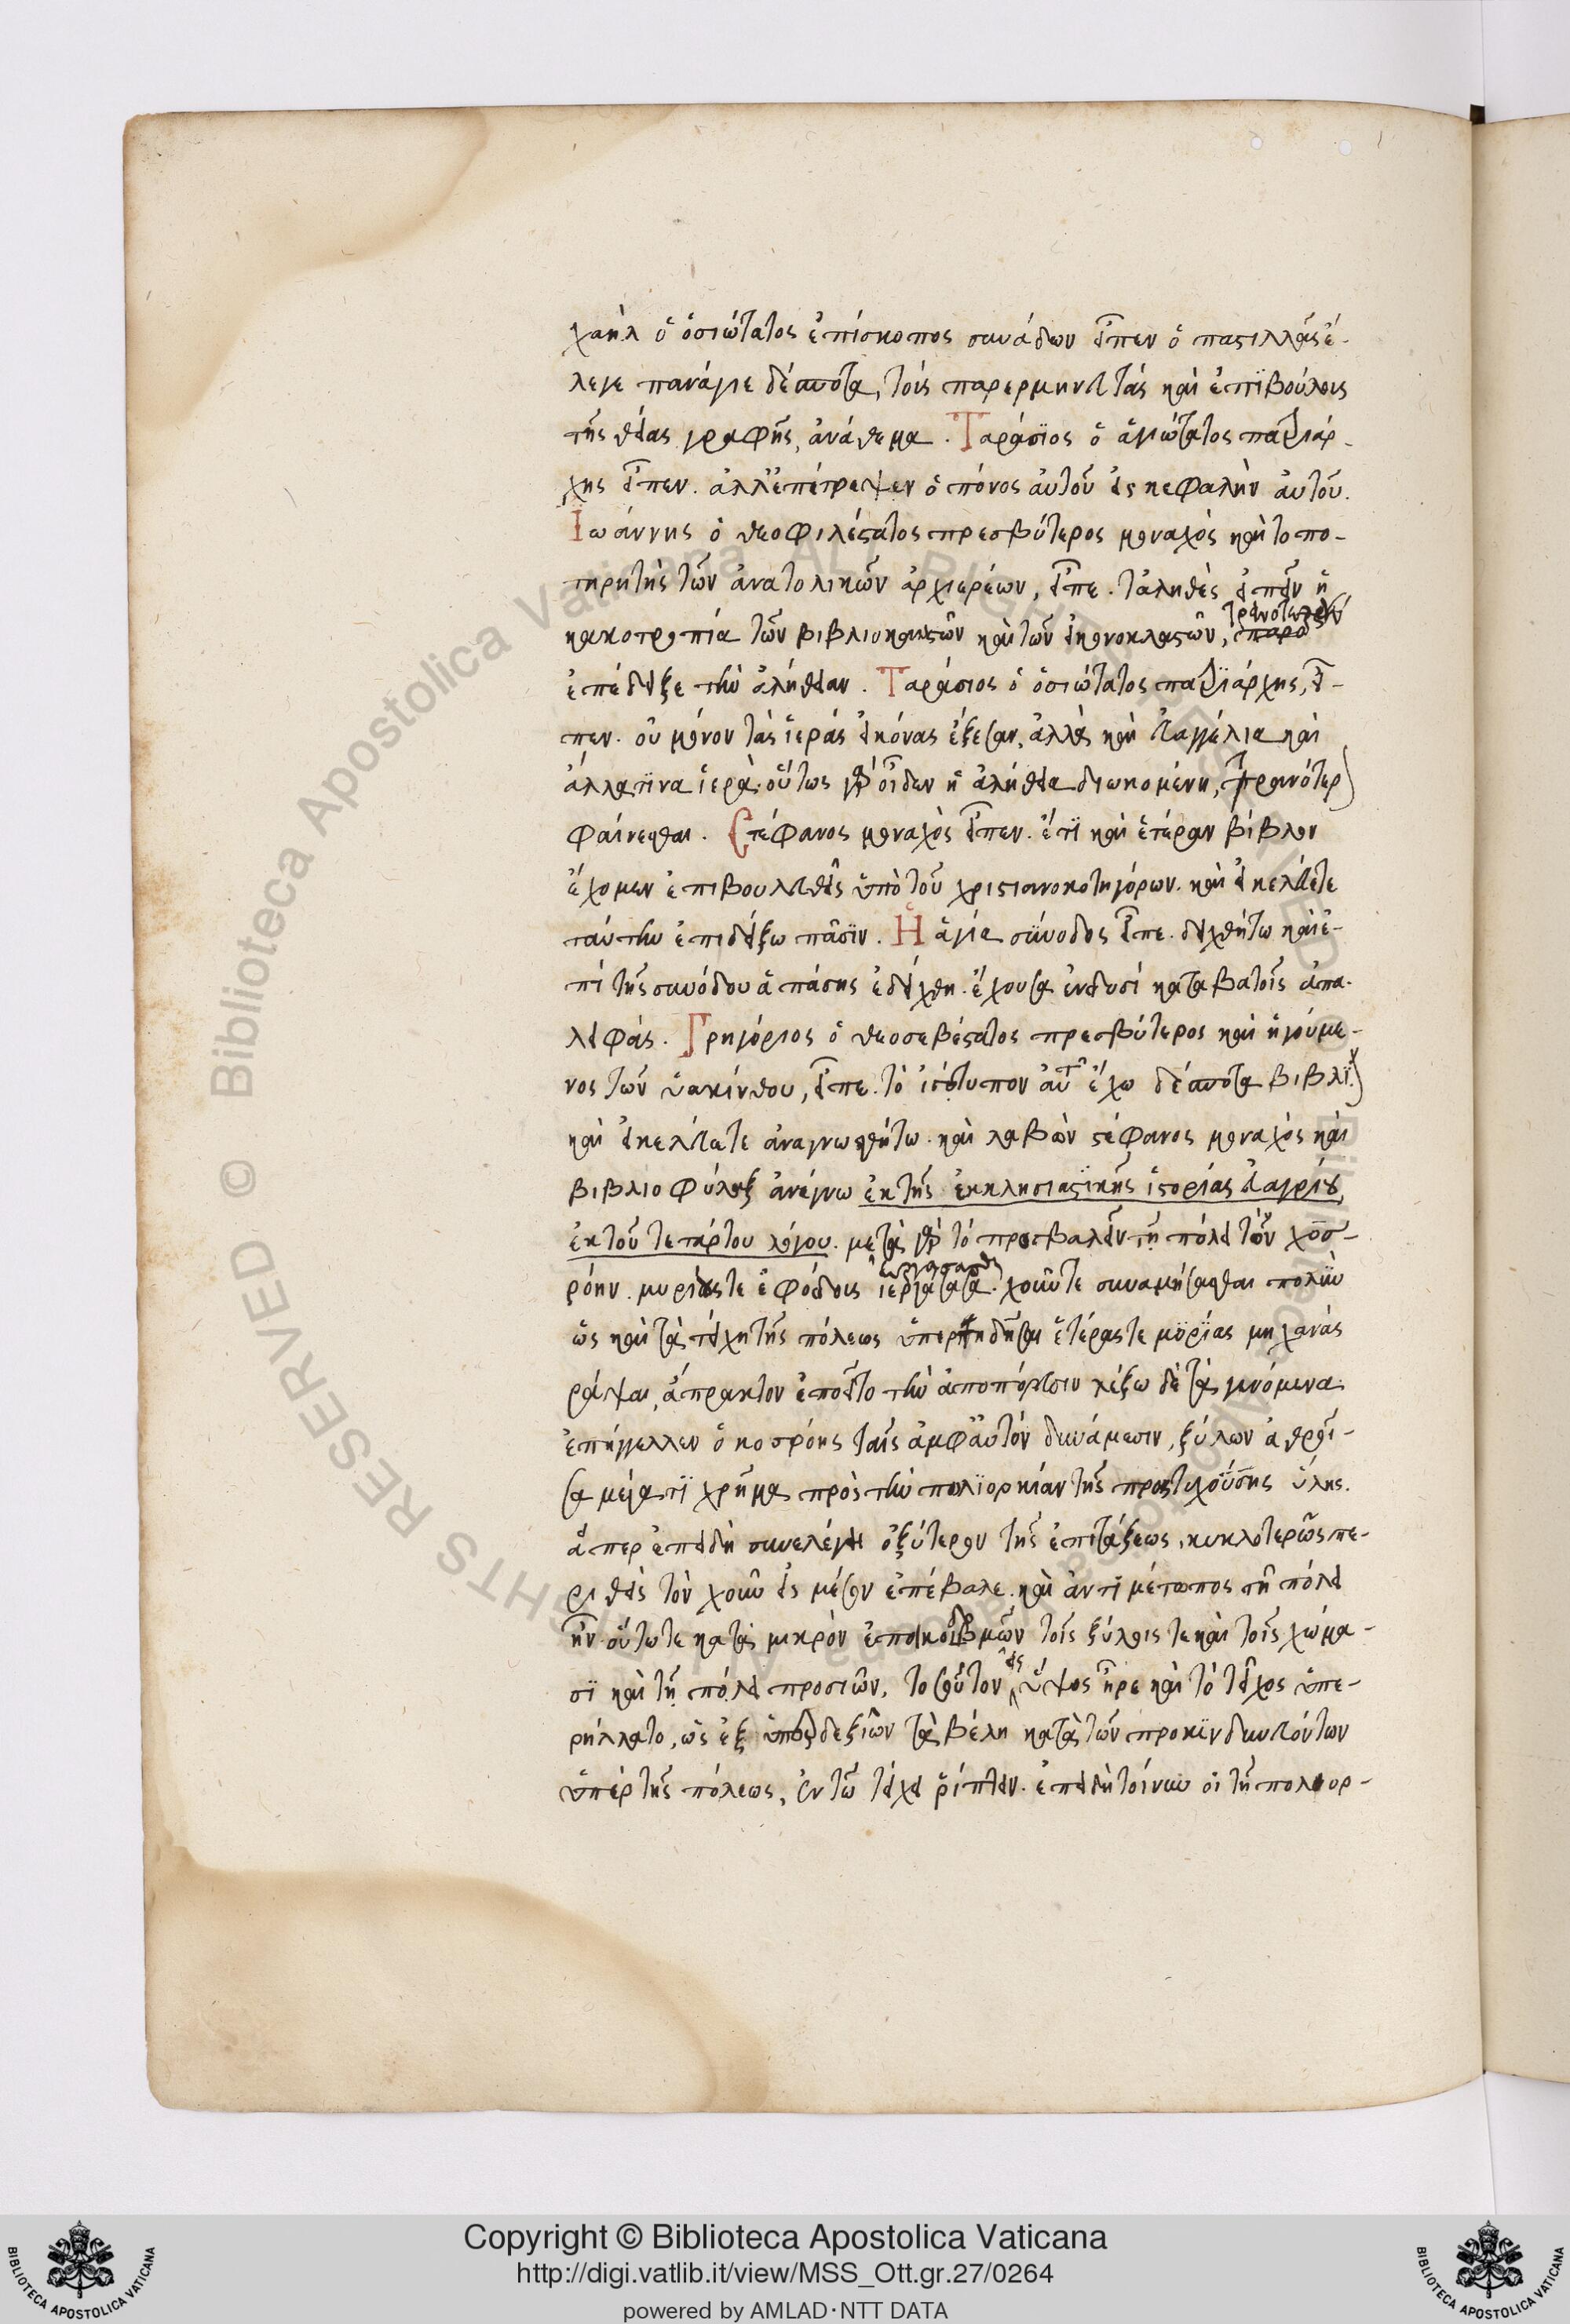 χαὴλ ὁ ὁσιώτατος ἐπίσκοπος συνάδων εἶπεν ὁ παστιλλᾶς ἔ-
λεγε πανάγιε δέσποτα, τοὺς παρερμηνευτὰς καὶ ἐπϊβούλους
τῆς θείας γραφῆς, ἀνάθεμα. Ταράσϊος ὁ ἁγιώτατος πατριάρ-
χης εἶπεν. ἀλλ' ἐπέτρεψεν ὁ πόνος αὐτοῦ εἰς κεφαλὴν αὐτοῦ.
Ἰωάννης ὁ θεοφιλέστατος πρεσβύτερος μοναχὸς καὶ τοπο-
τηρητὴς τῶν ἀνατολικῶν ἀρχιερέων, εἶπε. τἀληθὲς εἰπεῖν ἡ
κακοτροπία τῶν βιβλιοκαυστῶν καὶ τῶν εἰκονοκλαστῶν,
ἐπέδειξε τὴν ἀλήθειαν. Ταράσιος ὁ ὁσιώτατος πατρϊάρχης, εἶ-
πεν. οὐ μόνον τὰς ἱερὰς εἰκόνας ἔξεσαν, ἀλλὰ καὶ εὐαγγέλια καὶ
ἄλλα τϊνα ἱερὰ. οὕτως γὰρ οἶδεν ἡ ἀλήθεια διωκομένη, τρανότερ
φαίνεσθαι. Στέφανος μοναχὸς εἶπεν. ἔτϊ καὶ ἑτέραν βίβλον
ἔχομεν ἐπιβουλευθεῖς ὑπὸ τοῦ χριστιανοκατηγόρων. καὶ εἰ κελεύετε
ταύτην ἐπιδείξω πᾶσϊν. Ἡ ἁγία σύνοδος εἶπε. δειχθήτω καὶ ἐ-
πὶ τῆς συνόδου ἁπάσης ἐδείχθη. ἔχουσα ἐν δυσὶ καταβατοῖς ἀπα-
λειφάς. Γρηγόριος ὁ θεοσεβέστατος πρεσβύτερος καὶ ἡγούμε-
νος τῶν ὑακίνθου, εἶπε. τὸ ἰσότυπον αὐτ ἔχω δέσποτα βιβλί
καὶ εἰ κελεύετε ἀναγνωσθήτω. καὶ λαβὼν στέφανος μοναχὸς καὶ
βιβλιοφύλαξ ἀνέγνω ἐκ τῆς ἐκκλησιαστϊκῆς ἱστορίας εὐαγρίου,
ἐκ τοῦ τετάρτου λόγου. μετὰ γὰρ τὸ προσβαλεῖν τῇ πόλει τὸν χοσ-
ρόην. μυρίαις τε ἐφόδοις χοῦν τε συναμήσασθαι πολὺν
ὡς καὶ τὰ τείχη τῆς πόλεως ὑπερπηδῆσαι ἑτέρας τε μϋρϊας μηχανὰς
ράψαι, ἄπρακτον ἐποιεῖτο τὴν ἀποπόρευσιν λέξω δὲ τὰ γενόμενα.
ἐπήγγελλεν ὁ κοσρόης ταῖς ἀμφ' αὐτόν δυνάμεσιν, ξύλων ἀθροῖ-
σα μέγα τϊ χρῆμα πρὸς τὴν πολϊορκίαν τῆς προστυχούσης ὕλης.
ἅπερ ἐπειδὴ συνελέγει ὀξύτερον τῆς ἐπιτάξεως, κυκλοτερῶς πε-
ριθεὶς τὸν χοῦν εἰς μέσον ἐπέβαλε. καὶ ἀντϊμέτωπος τῇ πόλει
ἦν. οὕτω τε κατὰ μικρὸν ἐποικοδομῶν τοῖς ξύλοις τε καὶ τοῖς χώμα-
σϊ καὶ τῇ πόλει προσιὼν, τοσοῦτον εἰς ὕψος ἦρε καὶ τὸ τεῖχος ὑπε-
ρήλλατο, ὡς ἐξ ὑπερδεξίων τὰ βέλη κατὰ τῶν προκϊνδυνευόντων
ὑπὲρ τῆς πόλεως, ἐν τῷ τείχει ῥίπτειν. ἐπειδὴ τοίνυν οἱ τῇ πολιορ-
Copyright © Biblioteca Apostolica Vaticana
http://digi.vatlib.it/view/MSS_Ott.gr.27/0264
powered by AMLAD·NTT DATA